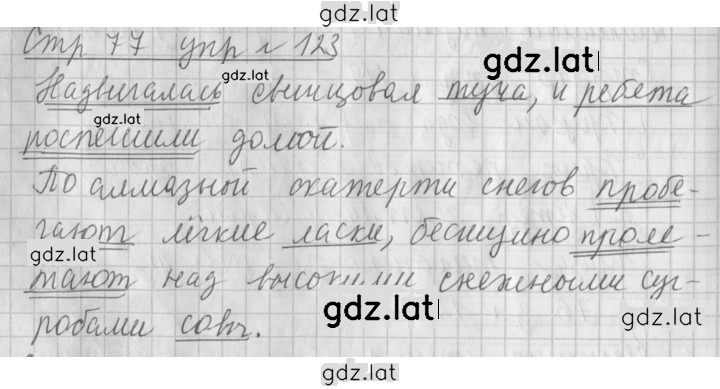 gdz.lat
Стр 77 упр № 123
gdz.lat
gdz.lat
Надвигалась свинцовая туча, и ребета
gdz.lat
роспешили домой.
По алмазной скатерти снегов пробе-
гают лёгкие ласки, бесшумно проле-
gdz.lat
тают над высокими снежными суг-
робами совы.
gdz.lat
gdz.lat
gdz.lat